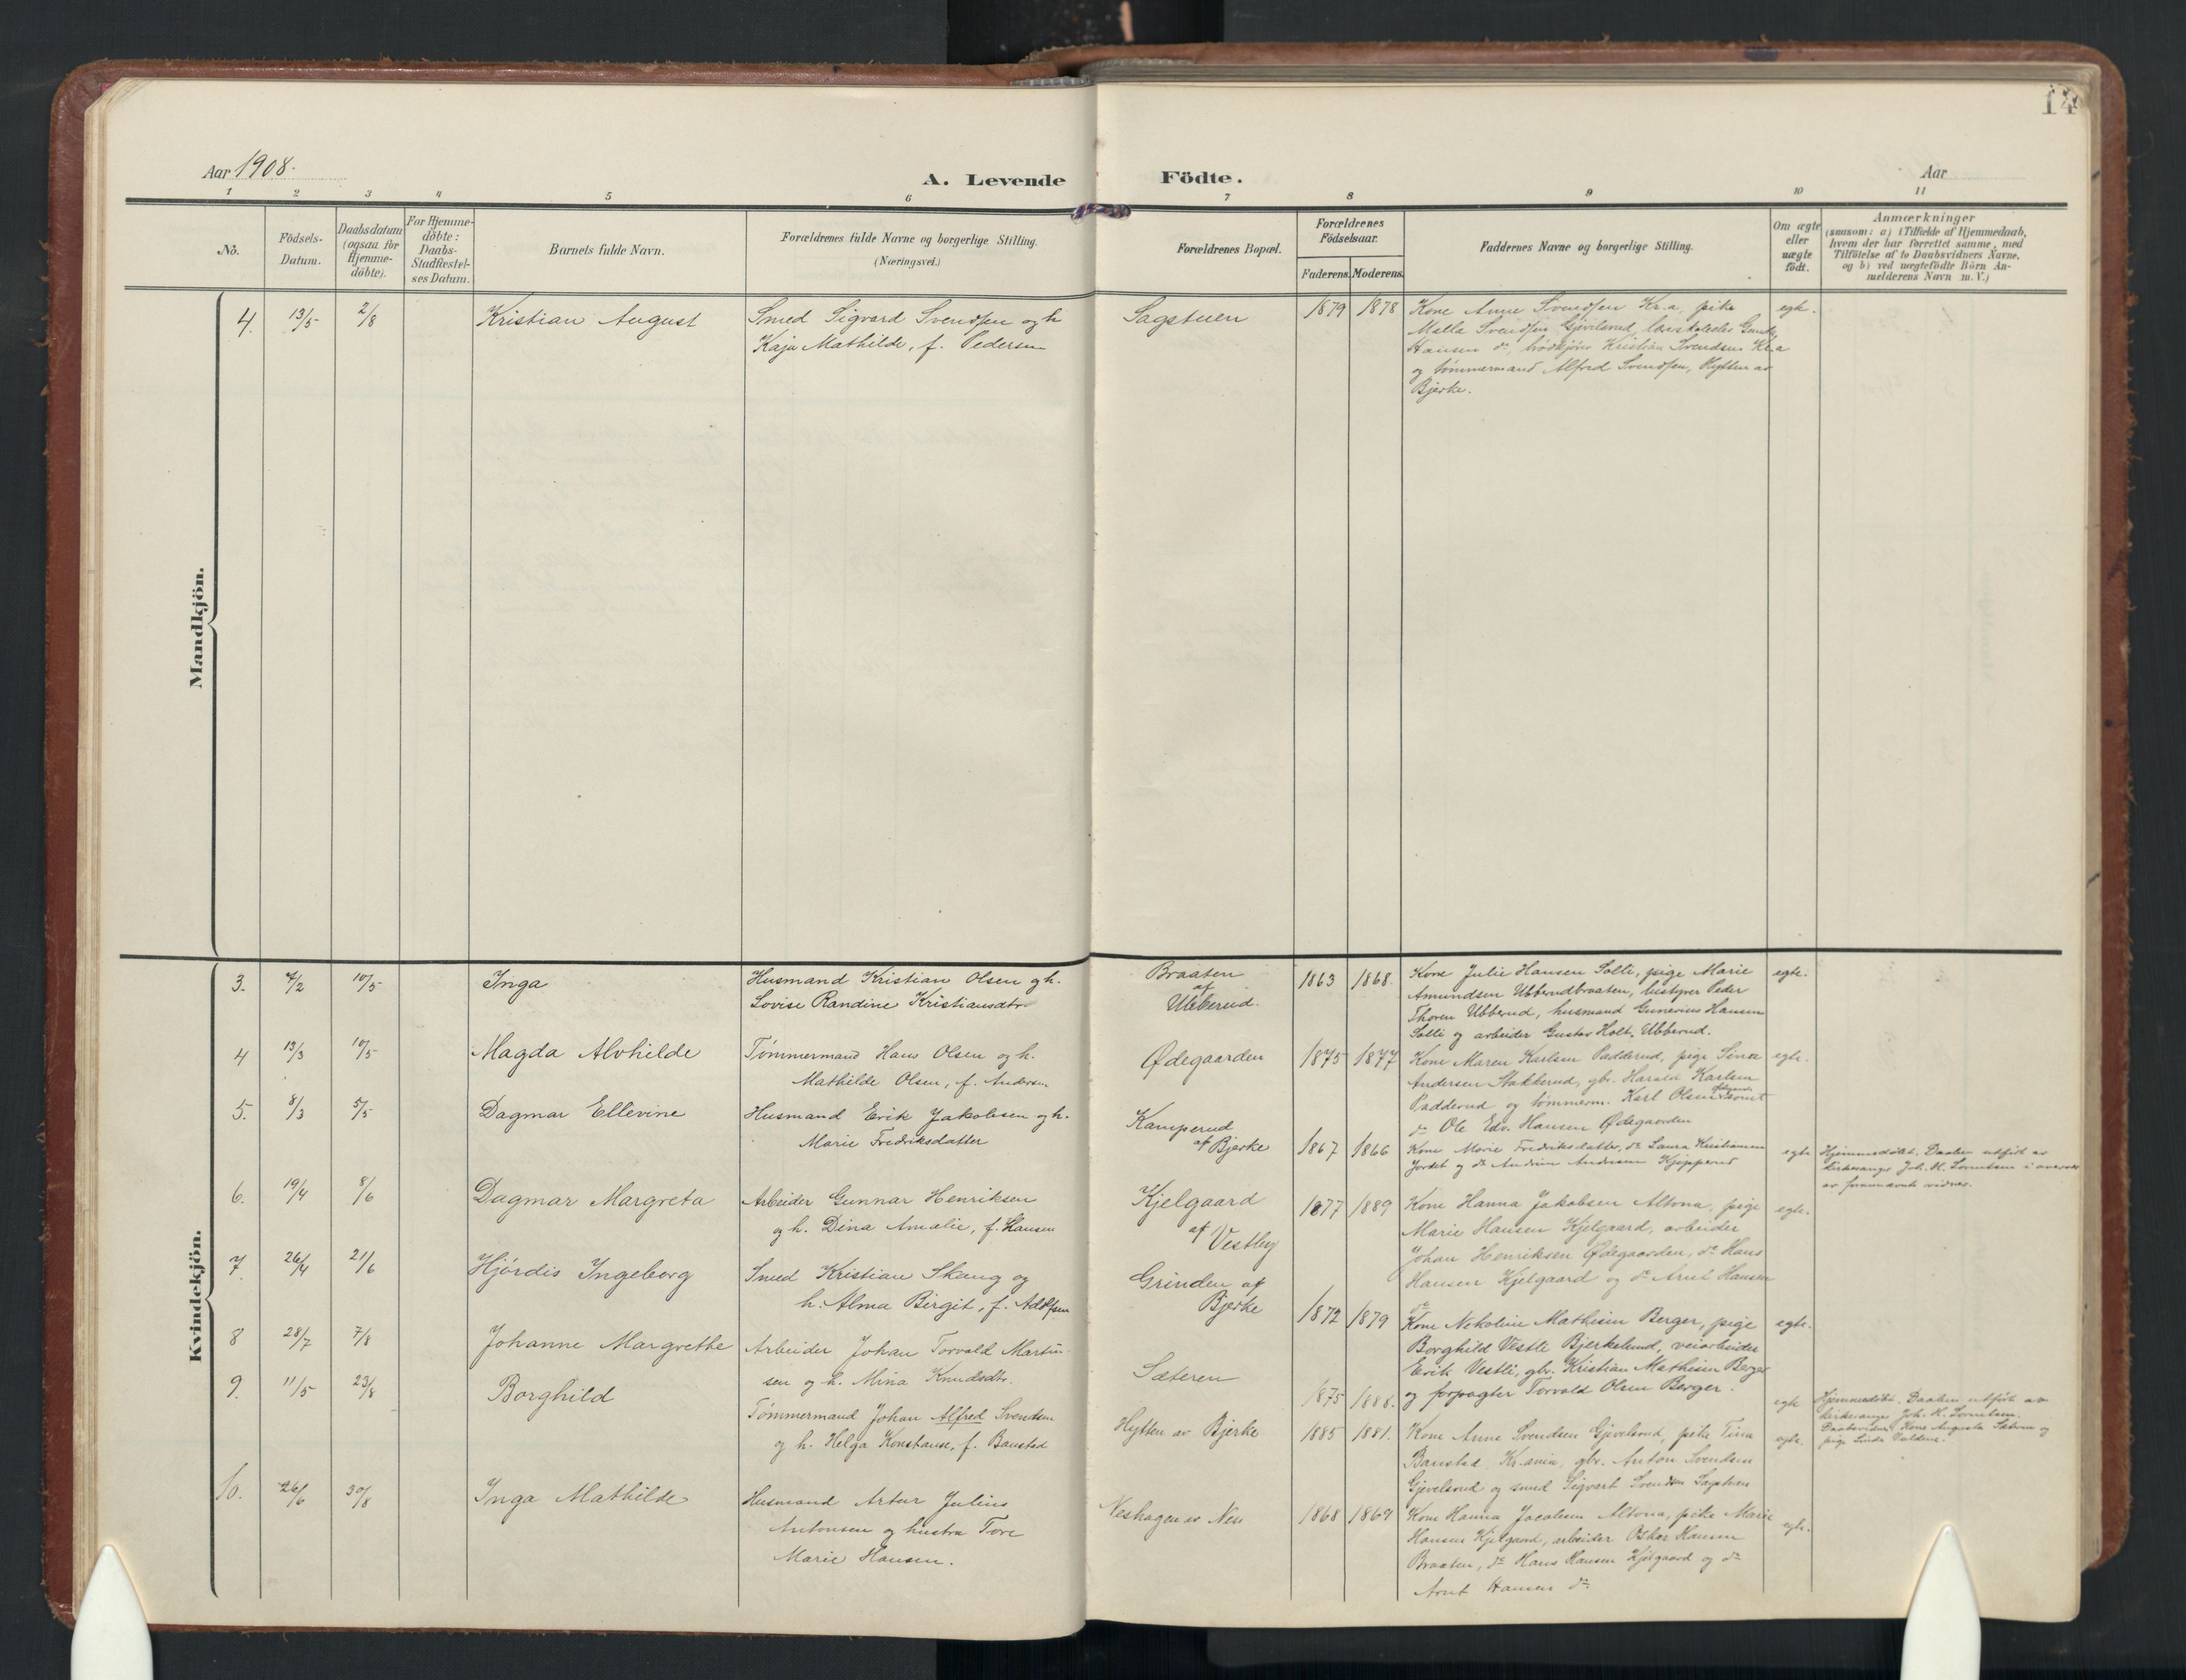 14
Aar 1908.
A. Levende Födte.
Aar
1 2 3 4 5 6 7 8 9 10 11
No.
Födsels-
Datum.
Daabsdatum
(ogsaa for
Hjemme-
döbte).
For Hjemme-
döbte:
Daabs-
Stadfæstel-
ses Datum.
Barnets fulde Navn.
Forældrenes fulde Navne og borgerlige Stilling.
(Næringsvei.)
Forældrenes Bopæl.
Forældrenes
Födselsaar.
Faderens. Moderens.
Faddernes Navne og borgerlige Stilling.
Om ægte
eller
uægte
födt.
Anmærkninger
(saasom: a) i Tilfælde af Hjemmedaab,
hvem der har forrettet samme, med
Tilföielse af to Daabsvidners Navne,
og b) ved uægtefödte Börn An-
melderens Navn m. V.)
Mandkjön.
4. 13/5 2/8 Kristian August
Smed Sigvard Svendsen og h
Kaja Mathilde, f. Pedersen
Sagstuen
1879 1878
Kone Anne Svendsen Kr.a, pike
Svendsen Gjivelsrud,
Hansen do, brødkjører Kristian Svendsen Kr.a
og tømmermand Alfred Svendsen, Hytten av
Bjerke.
egte.
Kvindekjön.
3. 7/2 10/5 Inga
Husmand Kristian Olsen og h.
Lovise Randine Kristiansdtr
Braaten
af
Ubberud.
1863 1868.
Kone Julie Hansen Solli, pige Marie
Amundsen Ubberudbraaten, bestyrer Peder
Thoren Ubberud, husmand Gunerius Hansen
Solli og arbeider Gustav Holt, Ubberud.
egte.
4 13/3 10/5 Magda Alvhilde
Tømmermand Hans Olsen og h.
Mathilde Olsen, f. Andersen
Ødegaarden
1875 1877
Kone Maren Karlsen Padderud, pige Sina
Andersen Stakkerud, gbr. Harald Karlsen
Padderud og tømmerm. Karl Olsen samt
do Ole Edv. Hansen Ødegaarden
egte.
5. 8/3 5/5 Dagmar Ellevine
Husmand Erik Jakobsen og h.
Marie Fredriksdatter
Kamperud
af Bjerke
1867 1866
Kone Marie Fredriksdatter, do Laura Kristiansen
Jordet og do Andrine Andersen Kjipperud
egte
Hjemmedøbt. Daaben utført av
kirkesanger Joh. H. Lorentsen i overvær
av førnævnte vidner.
6. 19/4 8/6 Dagmar Margreta
Arbeider Gunnar Henriksen
og h. Dina Amalie, f. Hansen
Kjelgaard
af Vestby
1877 1889
Kone Hanna Jakobsen Altona, pige
Marie Hansen Kjelgaard, arbeider
Johan Henriksen Ødegaarden, do Hans
Hansen Kjelgaard og do Arnt Hansen
do
egte.
7. 26/4 21/6 Hjördis Ingeborg
Smed Kristian Skaug og
h. Alma Birgit, f. Adolfsen
Grinden af
Bjerke
1872 1879
Kone Nekoline Mathisen Berger, pige
Borghild Vestli Bjerkelund, veiarbeider
Erik Vestli, gbr. Kristian Mathisen Berger
og forpagter Torvald Olsen Berger.
egte.
8 28/7 7/8 Johanne Margrethe
Arbeider Johan Torvald Martin-
sen og h. Mina Knudsdtr.
Sæteren
1875 1888.
egte
Hjemmedøbt. Daaben utført av
kirkesanger Joh. H. Lorentsen.
Daabsvidner: Kone Augusta Sætren og
pige
9. 11/5 23/8 Borghild
Tømmermand Johan Alfred Svendsen
og h. Helga Konstanse, f. Baustad
Hytten av Bjerke
1885 1881.
Kone Anne Svendsen Gjivelsrud, pike Tina
Baustad Kr.ania, gbr. Anton Svendsen
Gjevelsrud og smed Sigvart Svendsen Sagstuen
egte.
10. 26/6 30/8 Inga Mathilde
Husmand Artur Julius
Antonsen og hustru Tore
Marie Hansen.
Neshagen av Nes
1868 1869
Kone Hanna Jacobsen Altona, pike Marie
Hansen Kjelgaard, arbeider Oskar Hansen
Braaten, do Hans Hansen Kjelgaard og do
Arnt Hansen do
egte.